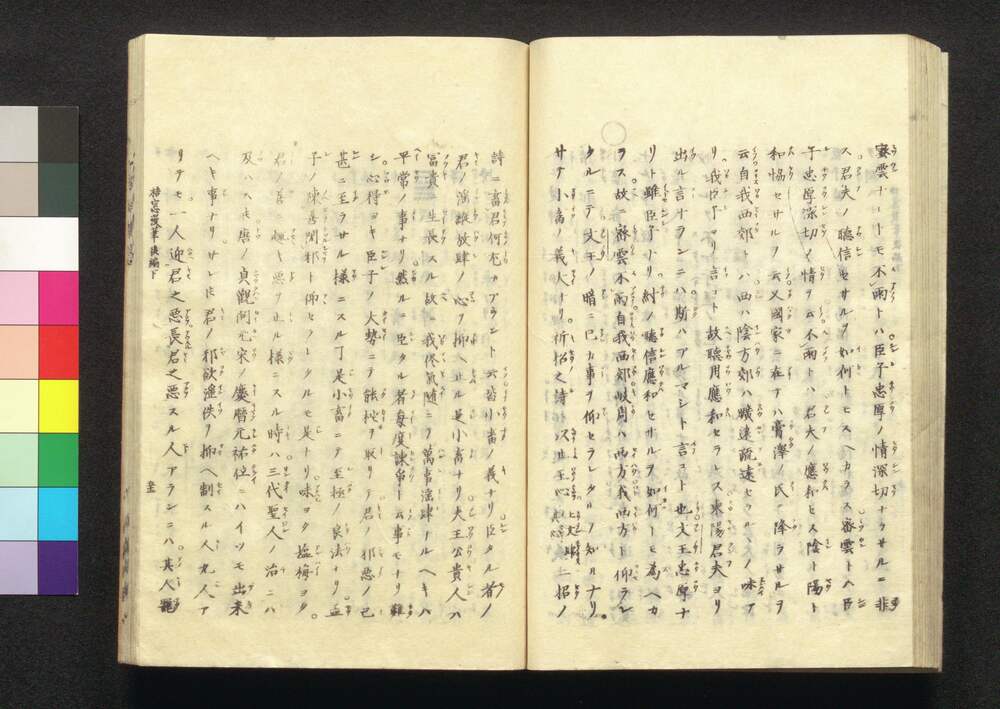 密雲ナレトモ不雨トハ臣子忠厚ノ情深切ナラサルニ非
ス君夫ノ聴信セサルヲ如何トモスヘカラス密雲トハ臣
子忠厚深切ノ情ヲ云不雨トハ君夫ノ應和セス陰ト陽ト
和恊セサルヲ云又國家ニ在テハ膏澤ノ民ニ降ラサルヲ
云自我西郊トハ西ハ陰方郊ハ曠遠疏遠セラルヽノ味ア
リ我臣下ヨリ言コト故聴用應和セラレス東陽君夫ヨリ
出ル言ナランニハ斯ハアルマシト言コト也文王忠厚ナ
リト雖臣子ナリ紂ノ聴信應和セサルヲ如何トモ為ヘカ
ラス故ニ密雲不雨自我西郊岐周ハ西方我西方ト仰ラレ
タルニテ文王ノ暗ニ已カ事ヲ仰セラレタルヲ知ルナリ
サテ小畜ノ義大ナリ祈招之詩以止王心
詩ニ畜君何尤カアラント云皆小畜ノ義ナリ臣タル者ノ
君ノ滛縦放肆ノ心ヲ抑ヘ止ル是小畜ナリ夫王公貴人ハ
冨貴ニ生長スル故ニ我侭氣随ニテ萬事滛肆ナルヘキハ
平常ノ事ナリ然ルニ臣タル者毎度諫争ト云事モナリ難
シ心得ヨキ臣子ノ大勢ニテ能扱ヲ取リテ君ノ邪悪ノ已
甚ニ至ラサル様ニスル丁是小畜ニテ至極ノ良法ナリ孟
子ノ陳善閉邪ト仰セラレタルモ是トリ味ヨク塩梅ヨク
君ノ善ニ恒キ悪ヲ止ル様ニスル時ハ三代聖人ノ治ニハ
及ハヘモ唐ノ貞観開元宋ノ慶暦元祐位ニハイツモ出来
ヘキ事ナリサレトモ君ノ邪欲滛佚ヲ抑ヘ制スル人尢人ア
リテモ一人迎君之悪長君之悪スル人アランニハ其人
梧窓漫筆後編下